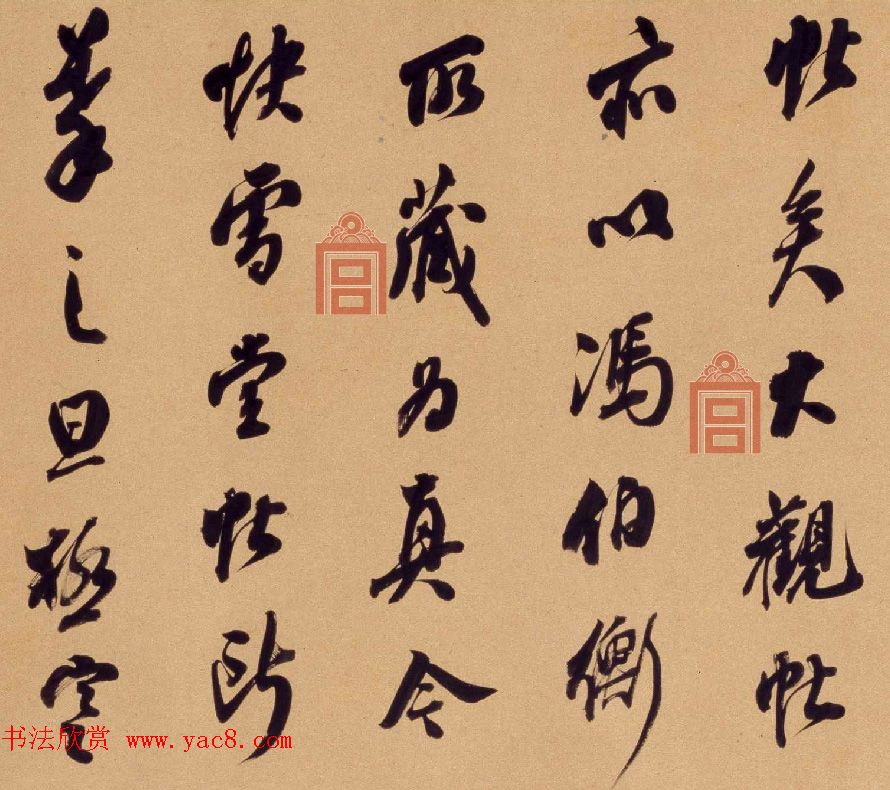 帖矣大觀帖
亦以馮伯衡
所藏為真今
快雪堂帖所
摹之旦極定
书法欣赏 www.yac8.com